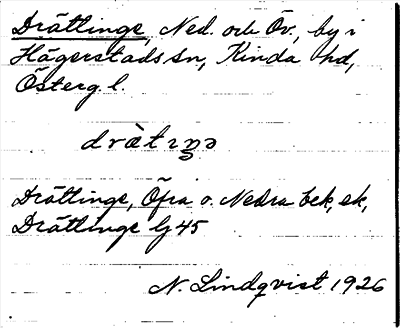 Drättinge, Ned. och Öv., by i
Hägerstads sn, Kinda hd,
Österg. l.
drät
Drättinge, Öfra o. Nedra bek, ek,
Drättinge lj 45
N. Lindqvist 1926